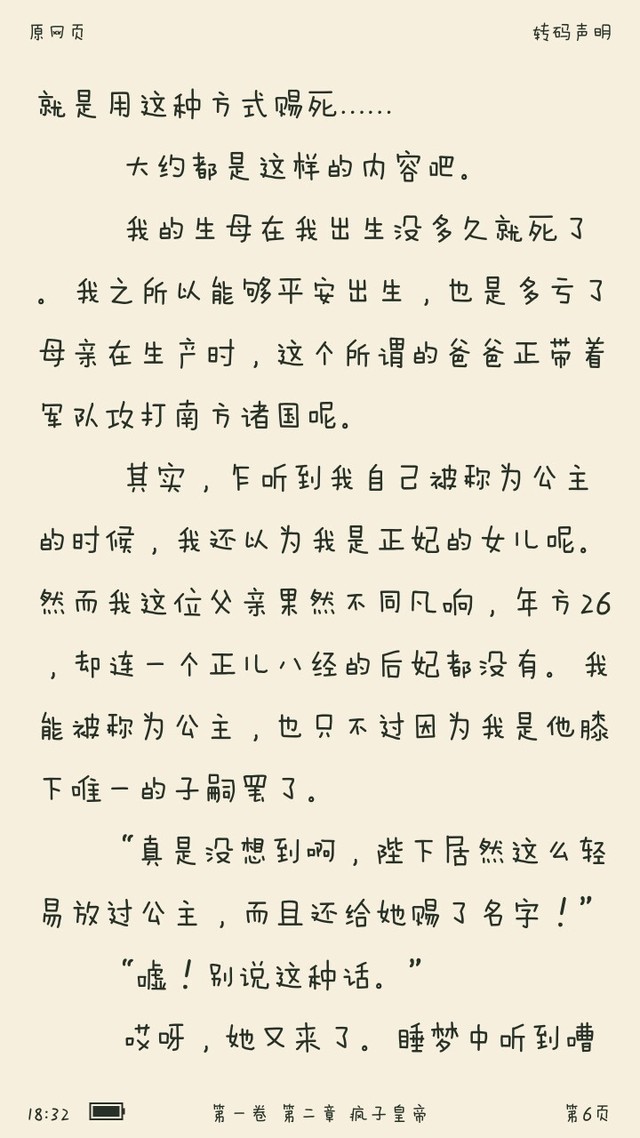 原网页 转码声明
就是用这种方式赐死……
大约都是这样的内容吧。
我的生母在我出生没多久就死了
。 我之所以能够平安出生，也是多亏了
母亲在生产时，这个所谓的爸爸正带着
军队攻打南方诸国呢。
其实，乍听到我自己被称为公主
的时候，我还以为我是正妃的女儿呢。
然而我这位父亲果然不同凡响，年方26
，却连一个正儿八经的后妃都没有。 我
能被称为公主，也只不过因为我是他膝
下唯一的子嗣罢了。
“真是没想到啊，陛下居然这么轻
易放过公主，而且还给她赐了名字！”
“嘘！别说这种话。”
哎呀，她又来了。 睡梦中听到嘈
18:32 第一卷 第二章 疯子皇帝 第6页